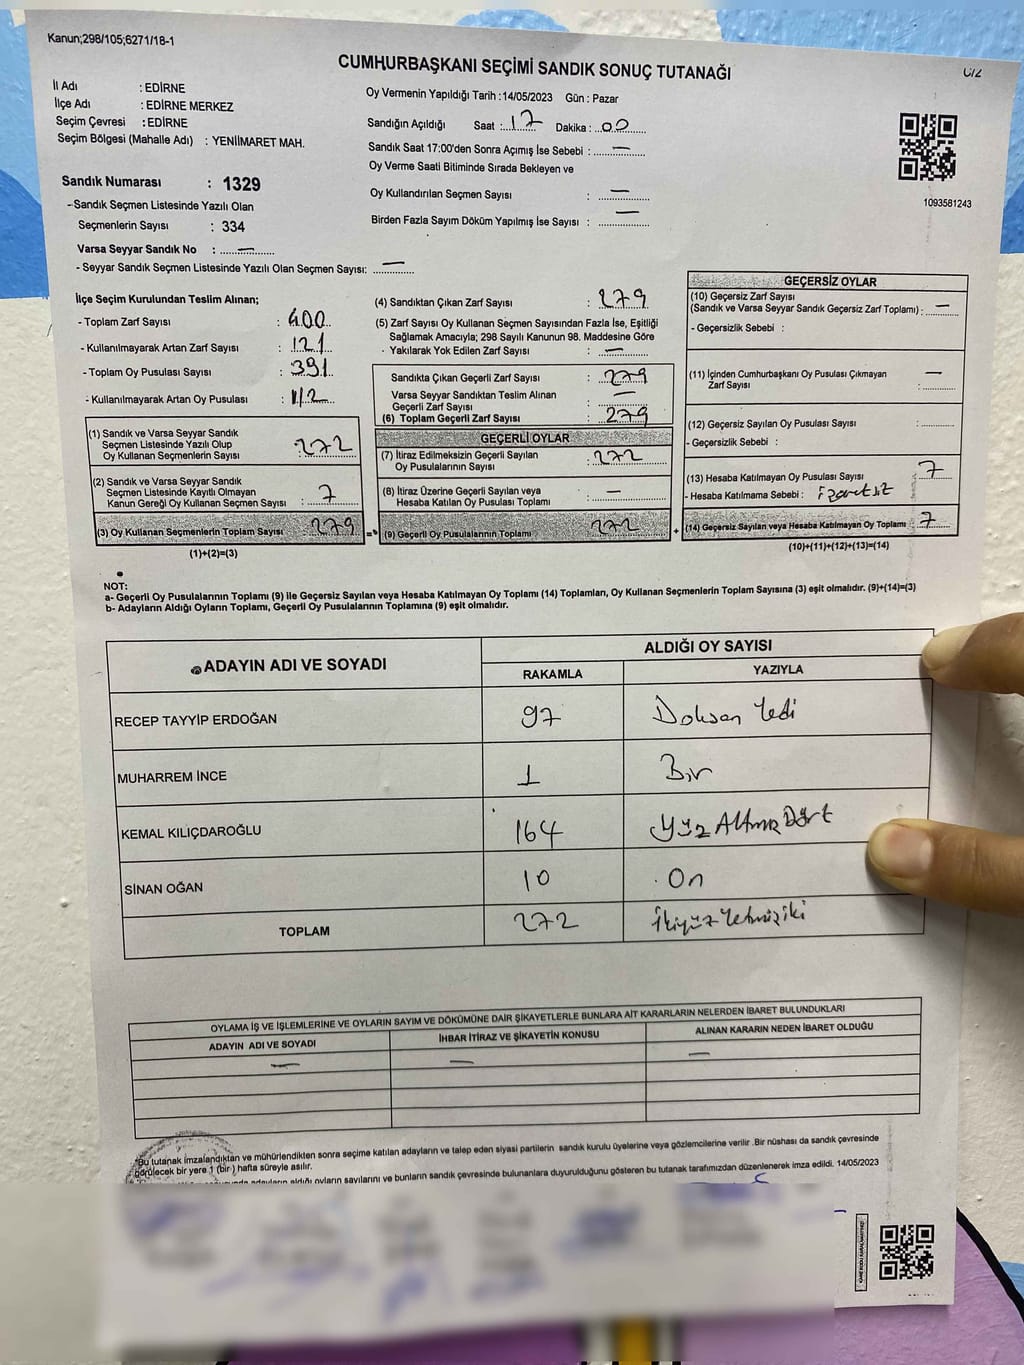 Kanun;298/105;6271/18-1
CUMHURBAŞKANI SEÇİMİ SANDIK SONUÇ TUTANAĞI
İl Adı : EDİRNE
İlçe Adı : EDİRNE MERKEZ
Seçim Çevresi : EDİRNE
Seçim Bölgesi (Mahalle Adı) : YENİİMARET MAH.
Sandık Numarası : 1329
-Sandık Seçmen Listesinde Yazılı Olan
Seçmenlerin Sayısı : 334
Varsa Seyyar Sandık No : —
- Seyyar Sandık Seçmen Listesinde Yazılı Olan Seçmen Sayısı: —
Oy Vermenin Yapıldığı Tarih :14/05/2023 Gün : Pazar
Sandığın Açıldığı Saat : 17 Dakika : 00
Sandık Saat 17:00'den Sonra Açımış İse Sebebi : —
Oy Verme Saati Bitiminde Sırada Bekleyen ve
Oy Kullandırılan Seçmen Sayısı : —
Birden Fazla Sayım Döküm Yapılmış İse Sayısı : —
1093581243
İlçe Seçim Kurulundan Teslim Alınan;
- Toplam Zarf Sayısı : 400
- Kullanılmayarak Artan Zarf Sayısı : 121
- Toplam Oy Pusulası Sayısı : 391
- Kullanılmayarak Artan Oy Pusulası : 112
(1) Sandık ve Varsa Seyyar Sandık
Seçmen Listesinde Yazılı Olup
Oy Kullanan Seçmenlerin Sayısı : 272
(2) Sandık ve Varsa Seyyar Sandık
Seçmen Listesinde Kayıtlı Olmayan
Kanun Gereği Oy Kullanan Seçmen Sayısı : 7
(3) Oy Kullanan Seçmenlerin Toplam Sayısı : 279
(1)+(2)=(3)
(4) Sandıktan Çıkan Zarf Sayısı : 279
(5) Zarf Sayısı Oy Kullanan Seçmen Sayısından Fazla İse, Eşitliği
Sağlamak Amacıyla; 298 Sayılı Kanunun 98. Maddesine Göre
Yakılarak Yok Edilen Zarf Sayısı : —
Sandıkta Çıkan Geçerli Zarf Sayısı : 279
Varsa Seyyar Sandıktan Teslim Alınan
Geçerli Zarf Sayısı : —
(6) Toplam Geçerli Zarf Sayısı : 279
GEÇERLİ OYLAR
(7) İtiraz Edilmeksizin Geçerli Sayılan
Oy Pusulalarının Sayısı : 272
(8) İtiraz Üzerine Geçerli Sayılan veya
Hesaba Katılan Oy Pusulası Toplamı : —
=
(9) Geçerli Oy Pusulalarının Toplamı 272
+
GEÇERSİZ OYLAR
(10) Geçersiz Zarf Sayısı
(Sandık ve Varsa Seyyar Sandık Geçersiz Zarf Toplamı) : —
- Geçersizlik Sebebi :
(11) İçinden Cumhurbaşkanı Oy Pusulası Çıkmayan
Zarf Sayısı : —
(12) Geçersiz Sayılan Oy Pusulası Sayısı :
- Geçersizlik Sebebi :
(13) Hesaba Katılmayan Oy Pusulası Sayısı : 7
- Hesaba Katılmama Sebebi : işaretsiz
(14) Geçersiz Sayılan veya Hesaba Katılmayan Oy Toplamı : 7
(10)+(11)+(12)+(13)=(14)
NOT:
a- Geçerli Oy Pusulalarının Toplamı (9) ile Geçersiz Sayılan veya Hesaba Katılmayan Oy Toplamı (14) Toplamları, Oy Kullanan Seçmenlerin Toplam Sayısına (3) eşit olmalıdır. (9)+(14)=(3)
b- Adayların Aldığı Oyların Toplamı, Geçerli Oy Pusulalarının Toplamına (9) eşit olmalıdır.
ADAYIN ADI VE SOYADI
ALDIĞI OY SAYISI
RAKAMLA YAZIYLA
RECEP TAYYİP ERDOĞAN 97 Doksan Yedi
MUHARREM İNCE 1 Bir
KEMAL KILIÇDAROĞLU 164 Yüz Altmış Dört
SİNAN OĞAN 10 On
TOPLAM 272 İkiyüz Yetmiş iki
OYLAMA İŞ VE İŞLEMLERİNE VE OYLARIN SAYIM VE DÖKÜMÜNE DAİR ŞİKAYETLERLE BUNLARA AİT KARARLARIN NELERDEN İBARET BULUNDUKLARI
ADAYIN ADI VE SOYADI İHBAR İTİRAZ VE ŞİKAYETİN KONUSU ALINAN KARARIN NEDEN İBARET OLDUĞU
— — —
*Bu tutanak imzalandıktan ve mühürlendikten sonra seçime katılan adayların ve talep eden siyasi partilerin sandık kurulu üyelerine veya gözlemcilerine verilir .Bir nüshası da sandık çevresinde
görülecek bir yere 1 (bir ) hafta süreyle asılır.
adayların aldığı oyların sayılarını ve bunların sandık çevresinde bulunanlara duyurulduğunu gösteren bu tutanak tarafımızdan düzenlenerek imza edildi. 14/05/2023